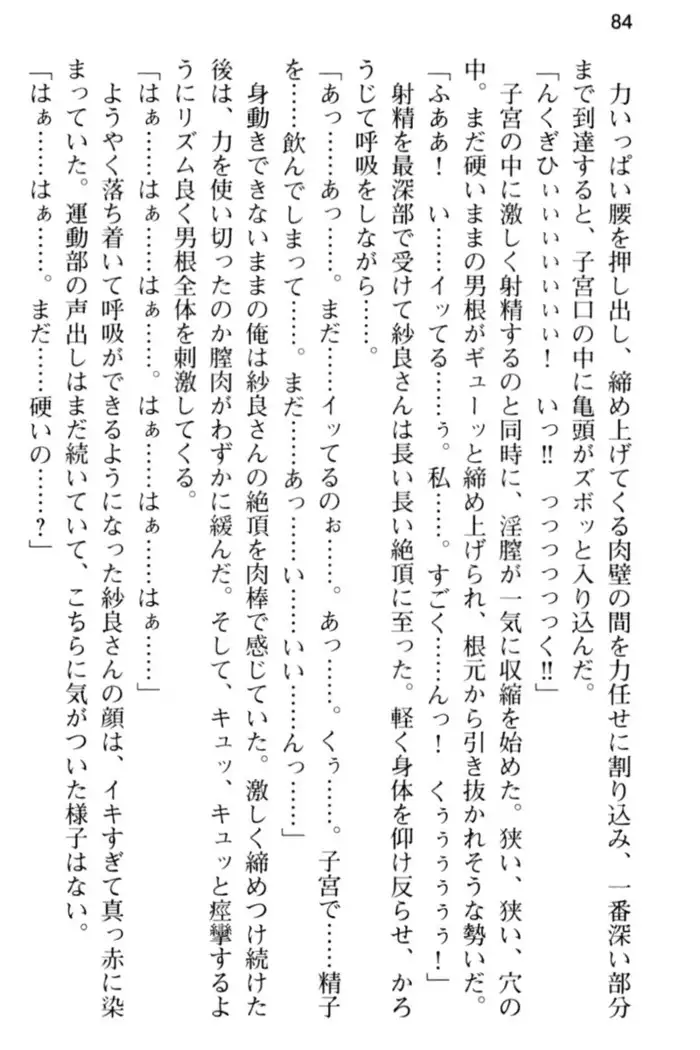 84
力いっぱい腰を押し出し、締め上げてくる肉壁の間を力任せに割り込み、一番深い部分
まで到達すると、子宮口の中に亀頭がズボッと入り込んだ。
「んくぎひぃぃいぃいぃい! いっ!! っつつつつつっく!!」
子宮の中に激しく射精するのと同時に、淫膣が一気に収縮を始めた。狭い、狭い、穴の
中。まだ硬いままの男根がギューッと締め上げられ、根元から引き抜かれそうな勢いだ。
「ふああ! い……イッてる……ぅ。私……。すごく……んっ! くぅぅぅぅぅ!」
射精を最深部で受けて紗良さんは長い長い絶頂に至った。軽く身体を仰け反らせ、かろ
うじて呼吸をしながら……。
「あっ……あっ……。まだ……イッてるのぉ……。あっ……。くぅ……。子宮で……精子
を……飲んでしまって……。まだ……あっ……い……いい……んっ……」
身動きできないままの俺は紗良さんの絶頂を肉棒で感じていた。激しく締めつけ続けた
後は、力を使い切ったのか膣肉がわずかに緩んだ。そして、キュッ、キュッと痙攣するよ
うにリズム良く男根全体を刺激してくる。
「はぁ……はぁ……はぁ……。はぁ……はぁ……はぁ……」
ようやく落ち着いて呼吸ができるようになった紗良さんの顔は、イキすぎて真っ赤に染
まっていた。運動部の声出しはまだ続いていて、こちらに気がついた様子はない。
「はぁ……はぁ……。まだ……硬いの……?」